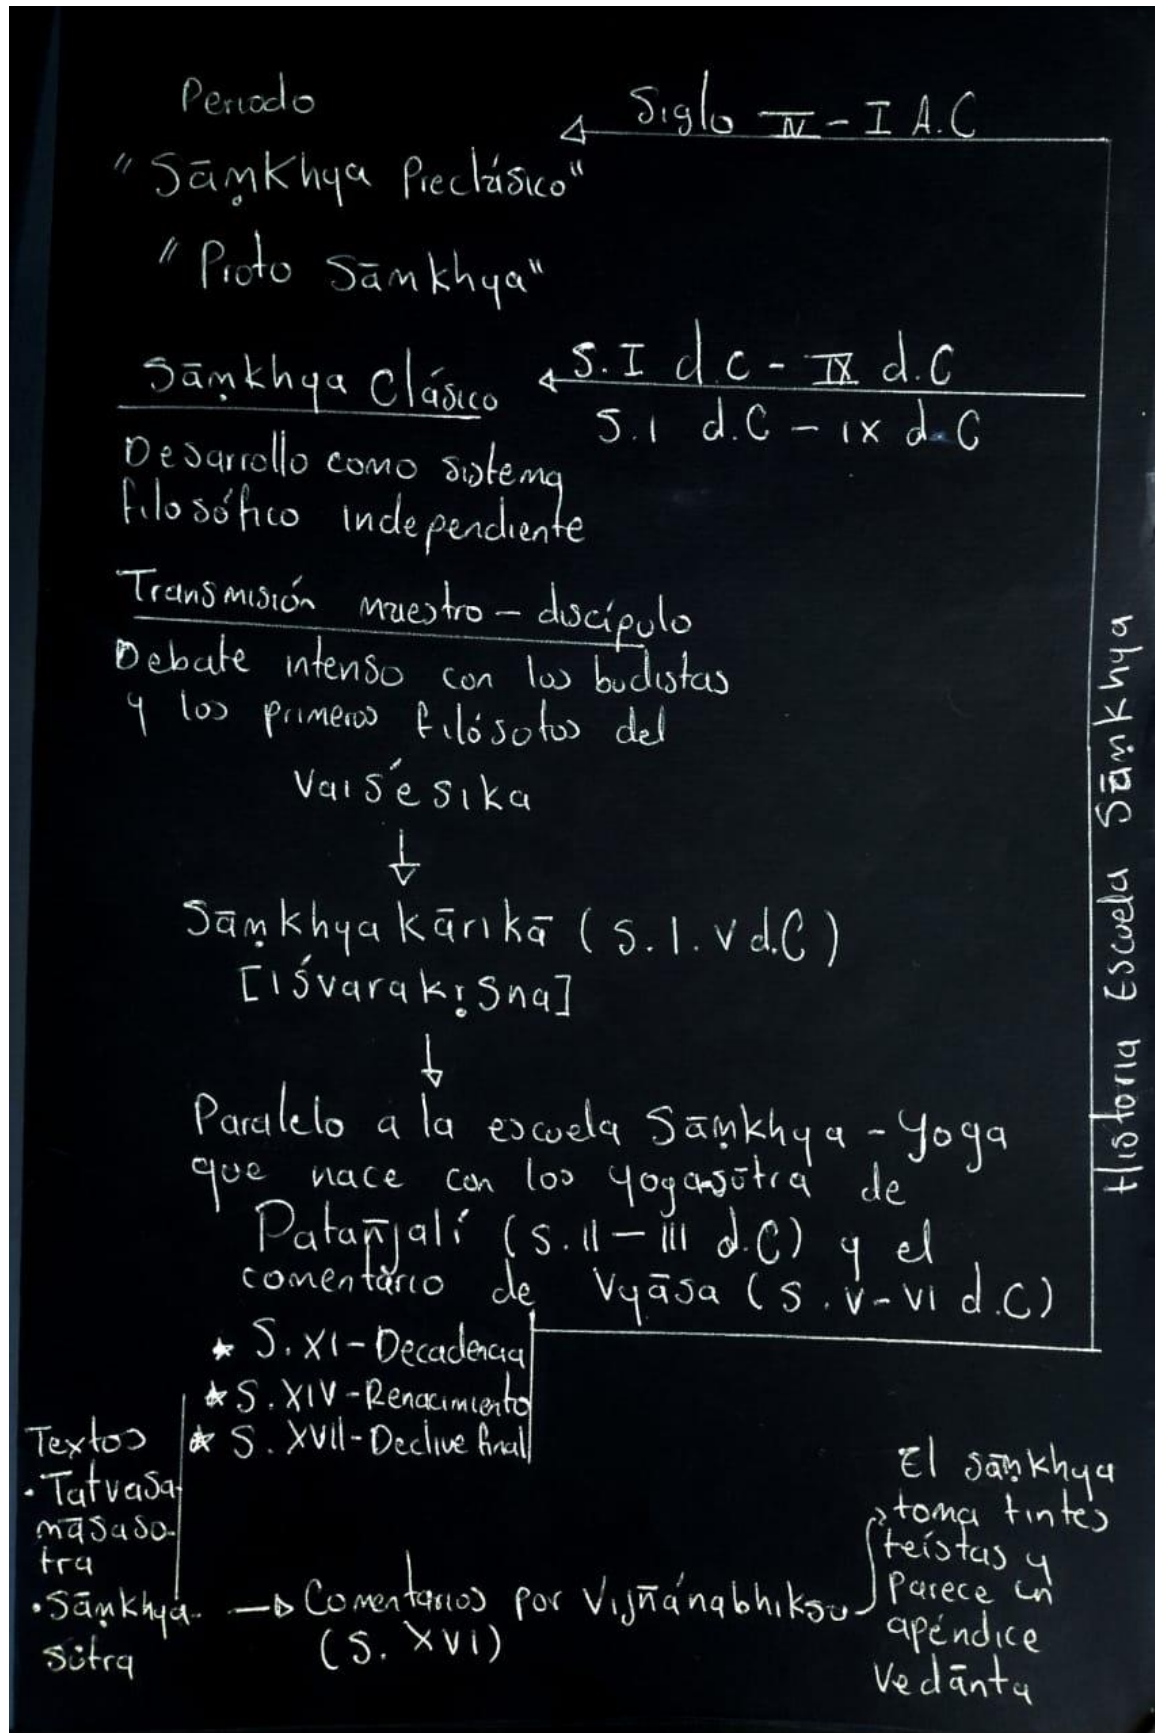 Periodo
Siglo IV - I A.C
"Sāṃkhya Preclásico"
"Proto Sāmkhya"
Sāṃkhya Clásico
S.I d.c - IX d.C
S.I d.C - IX d.C
Desarrollo como sistema
filosófico independiente
Transmisión maestro - discípulo
Debate intenso con los budistas
y los primeros filósofos del
Vaiśesika
Sāṃkhya Kārikā (S.I.V d.C)
[Iśvarakṛsna]
Paralelo a la escuela Sāṃkhya - Yoga
que nace con los yogasūtra de
Patañjalí (S.II - III d.C) y el
comentario de Vyāsa (S.V-VI d.C)
* S.XI - Decadencia
* S.XIV - Renacimiento
* S.XVII - Declive final
Historia Escuela Sāṃkhya
Textos
• Tatvasa-
māsaso-
tra
• Sāṃkhya-
sūtra
Comentarios por Vijñánabhiksu
(S. XVI)
El sāṃkhya
toma tintes
teístas y
parece un
apéndice
Vedānta